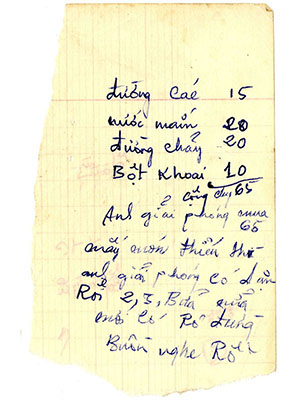 đường Caé 15
nước mắm 20
đường chảy 20
Bột Khoai 10
cộng chy 65
Anh giải phong mua 65
mấy món thiếu thờ
anh giải phong có
Rồi 2, 3, Bưa nữa
mới có Rô đừng
Buồn nghe Rồi